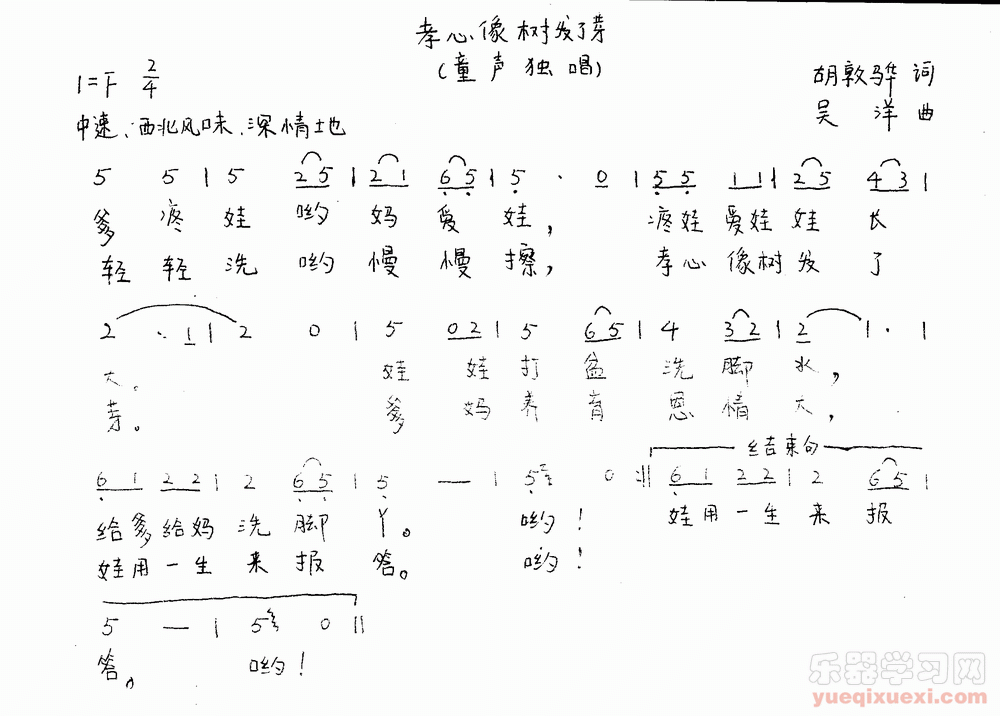 孝心像树发了芽
(童声独唱)
1=F 2/4
胡敦骅 词
吴 洋 曲
中速、西北风味、深情地
5 5 | 5 25 | 21 65 | 5 · 0 | 55 11 | 25 43 |
爹 疼 娃 哟 妈 爱 娃, 疼娃爱娃娃 长
轻 轻 洗 哟 慢 慢 擦, 孝心像树发 了
2 · 1 | 2 0 | 5 02 | 5 65 | 4 32 | 2 1 · |
大。 娃 娃 打 盆 洗 脚 水,
芽。 爹 妈 养 育 恩 情 大,
结束句
61 22 | 2 65 | 5 — | 5 0 :|| 61 22 | 2 65 |
给爹给妈 洗 脚 丫。 哟! 娃用一生 来 报
娃用一生 来 报 答。 哟!
5 — | 5 0 ||
答。 哟!
乐器学习网
yueqixuexi.com